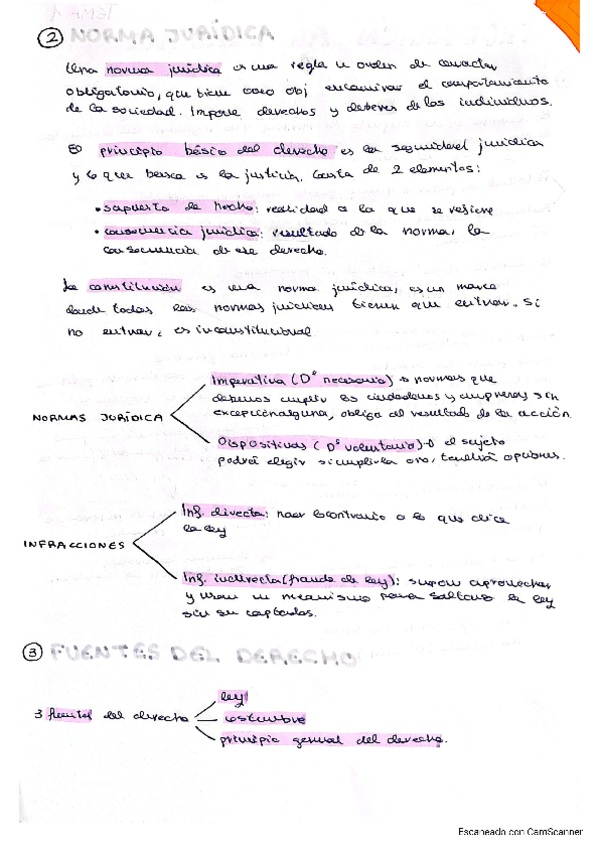 ② NORMA JURÍDICA
Una norma jurídica es una regla u orden de caracter
obligatorio, que tiene como obj encaminar el comportamiento
de la sociedad. Impone derechos y deberes de los individuos.
El principio básico del derecho es la seguridad jurídica
y lo que busca es la justicia. Consta de 2 elementos:
• supuesto de hecho: realidad a la que se refiere
• consecuencia jurídica: resultado de la norma, la
consecuencia de ese derecho.
La constitución es una norma jurídica, es un marco
donde todas las normas jurídicas tienen que entrar. Si
no entran, es inconstitucional.
NORMAS JURÍDICA
Imperativa (Dº necesario) → normas que
debemos cumplir los ciudadanos y empresas sin
excepción alguna, obliga al resultado de la acción.
Dispositivas (Dº voluntario) → el sujeto
podrá elegir si cumplirla o no, tendrá opciones.
INFRACCIONES
Inf. directa: hacer lo contrario a lo que dice
la ley
Inf. indirecta (fraude de ley): supon aprovechar
y usar un mecanismo para saltarse la ley
sin ser
③ FUENTES DEL DERECHO
3 fuentes del derecho
ley
costumbre
principio general del derecho.
Escaneado con CamScanner